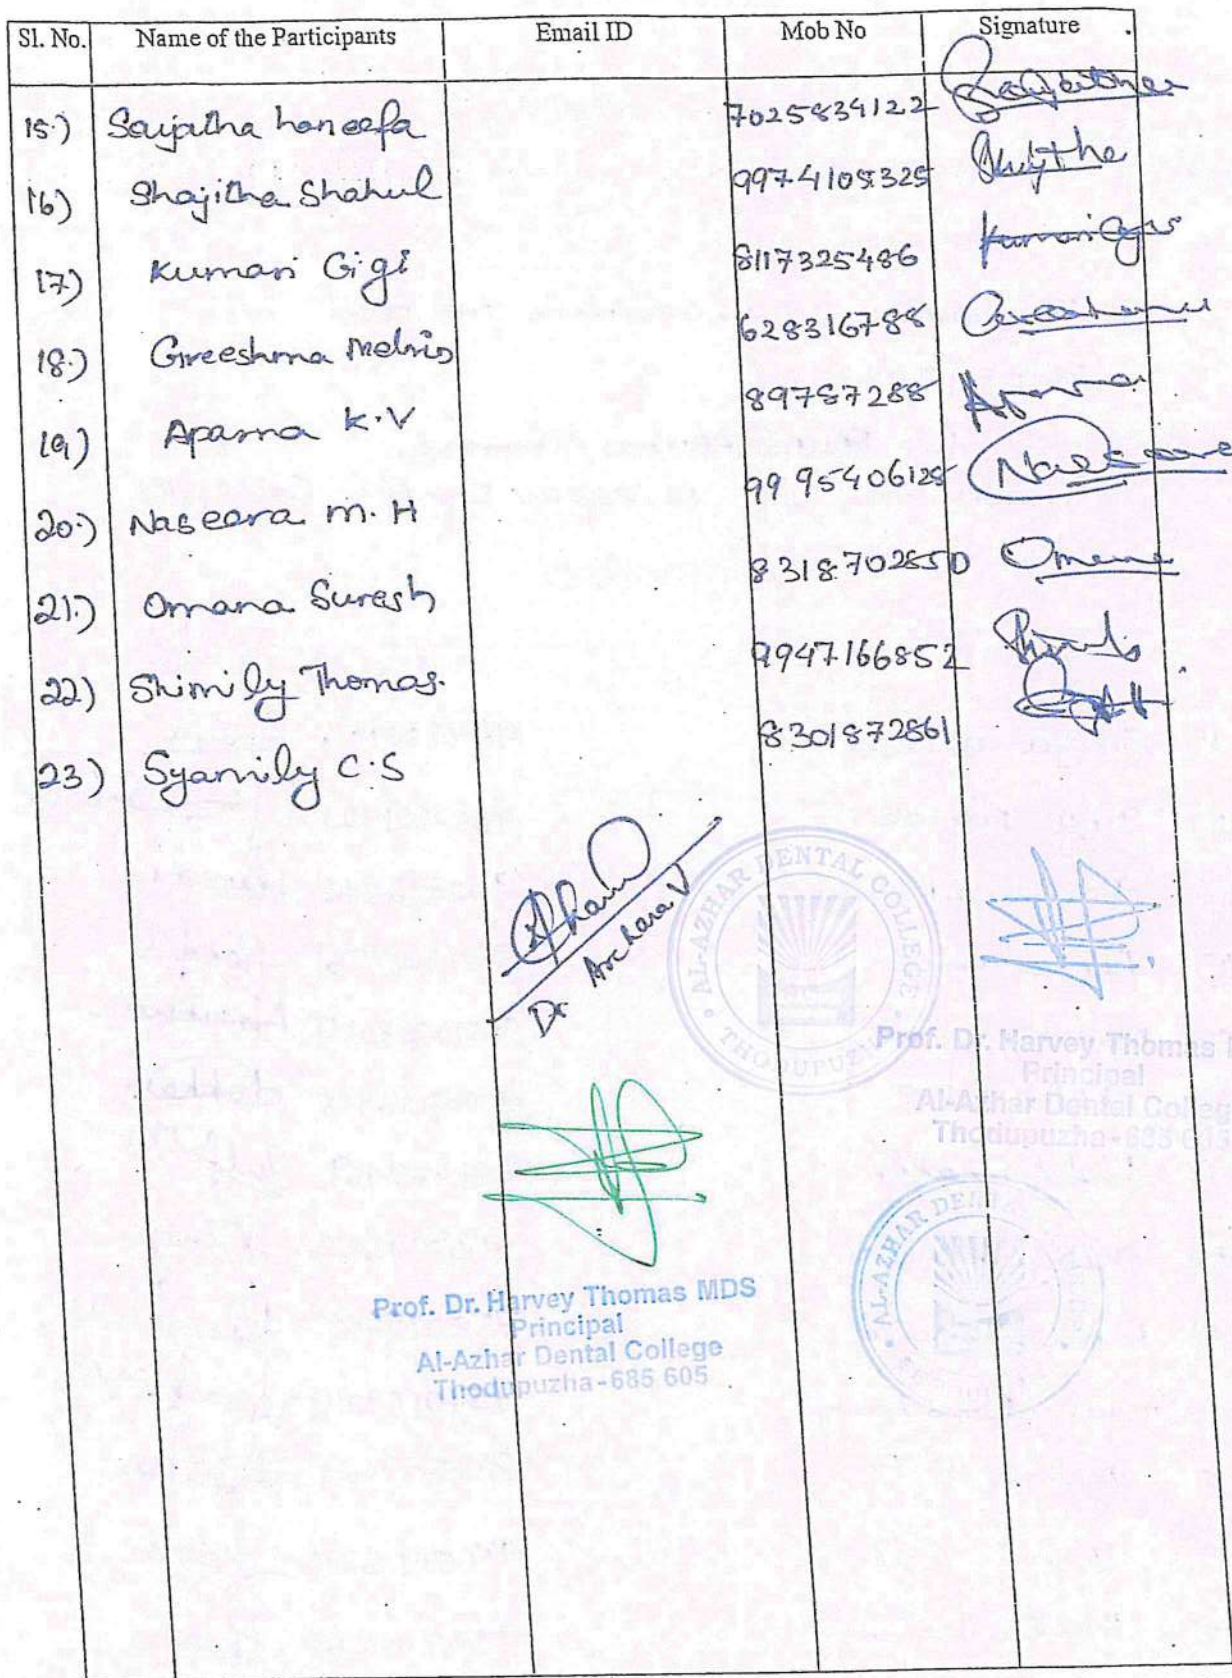 Sl. No. Name of the Participants Email ID Mob No Signature
15.) Saijatha haneefa 7025834122
16) Shajitha Shahul 9974105325 Shajitha
17) Kumari Gigi 8117325486 Kumari Gigi
18.) Greeshma Melvis 628316788
19.) Aparna K.V 89787288 Aparna
20.) Naseera M.H 9995406125 Naseera
21.) Omana Suresh 8318702850 Omana
22.) Shimily Thomas. 9947166852
23) Syamily C.S 8301872861
Dr Archana V
AL-AZHAR DENTAL COLLEGE
THODUPUZHA
Prof. Dr. Harvey Thomas
Principal
Al-Azhar Dental College
Thodupuzha-685 605
Prof. Dr. Harvey Thomas MDS
Principal
Al-Azhar Dental College
Thodupuzha-685 605
AL-AZHAR DENTAL